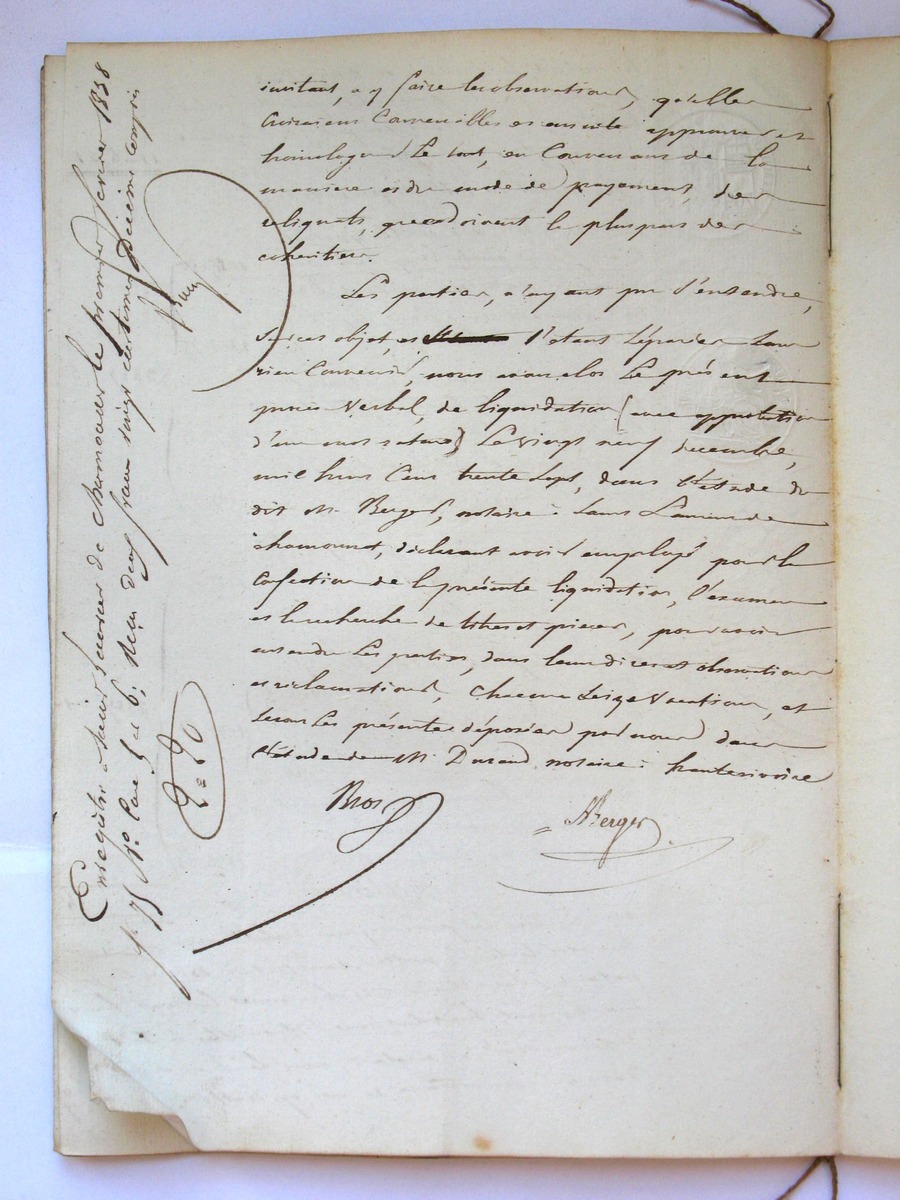 invitant, a y faire les observations, quelles
croiraient convenables et ensuite approuver et
homologuer le tout, en convenant de la
maniere et du mode de payement, des
reliquats, que doivent la pluspart des
cohéritiers.
Les parties, n'ayant pu s'entendre,
sur ces objet, et s'étant séparées sans
rien convenir, nous avons clos le présent
procès verbal, de liquidation (avec approbation
d'un mot raturé) le vingt neuf decembre,
mil huit cent trente sept, dans l'étude du
dit Mr Berger, notaire à Saint Laurent de
chamousset, déclarant avoir employé pour la
confection de la présente liquidation, l'examen
et la recherche de titres et pieces, pour avoir
entendu les parties, dans leurs dires et observations
et réclamations, chacun seize vacations, et
seront les présentes déposées par nous dans
l'étude de Mr Durand notaire à hauterivoire
Bros
Berger
Enregistré à Saint Laurent de chamousset le premier février 1838
f° 75 Vo Case 5 et 6. Reçu deux francs vingt centimes décime compris
2=20